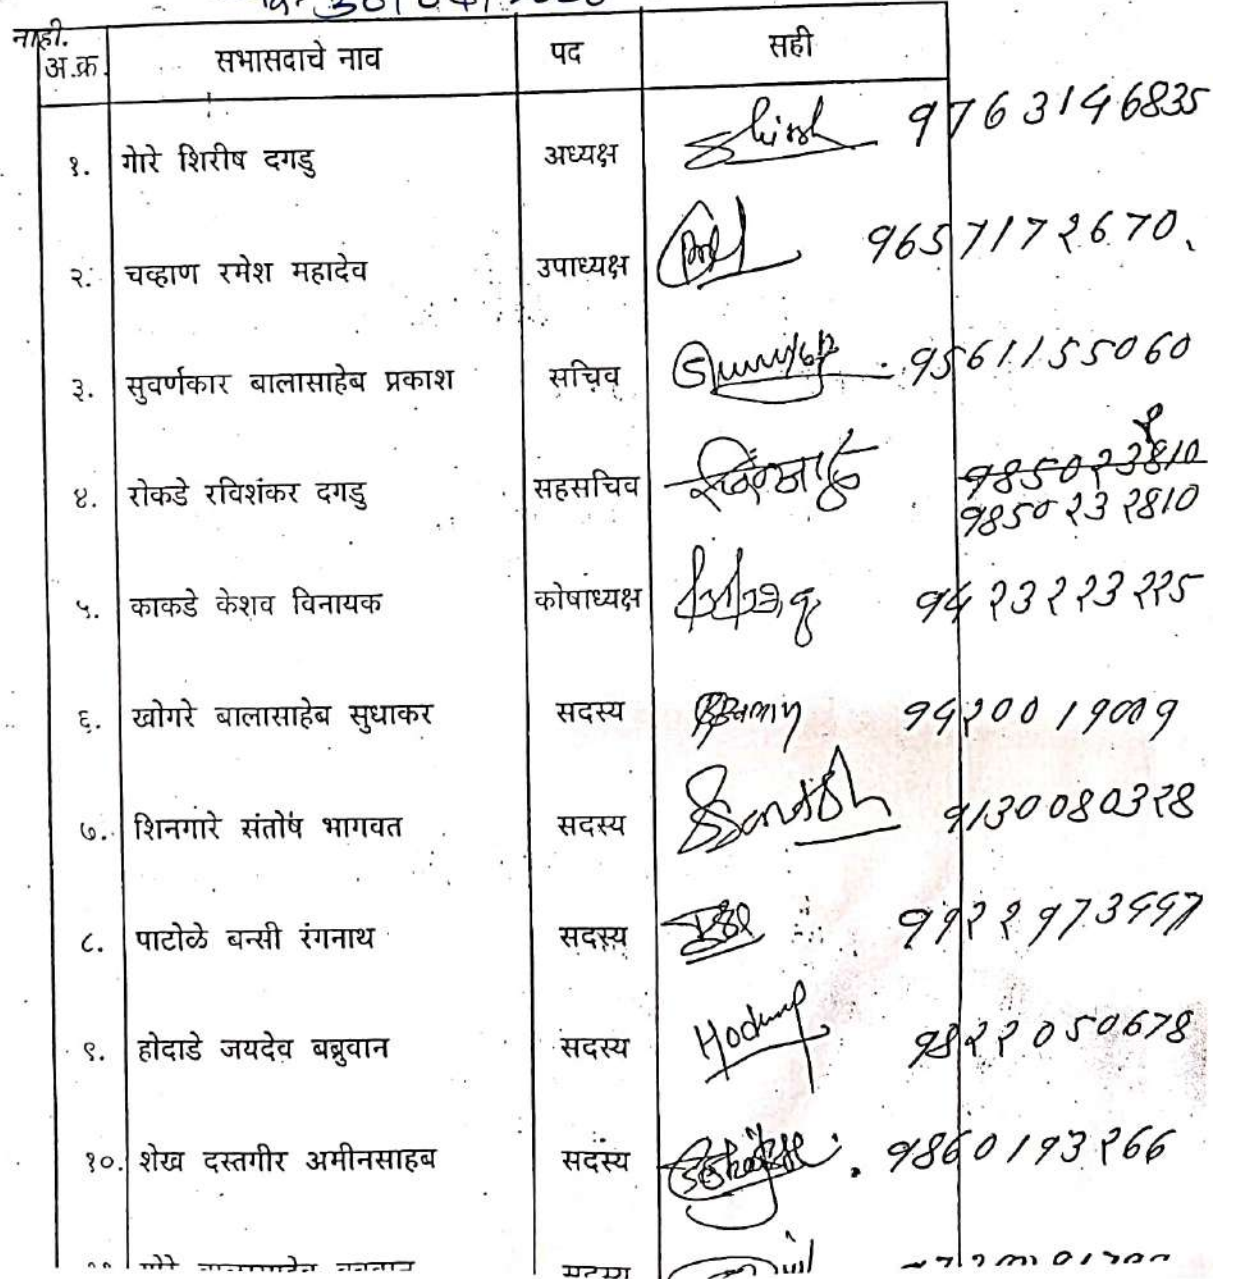 नाही.
अ.क्र. सभासदाचे नाव पद सही
१. गोरे शिरीष दगडु अध्यक्ष Shirish 9763146835
२. चव्हाण रमेश महादेव उपाध्यक्ष 9657172670
३. सुवर्णकार बालासाहेब प्रकाश सचिव 9561155060
४. रोकडे रविशंकर दगडु सहसचिव 9850232810
५. काकडे केशव विनायक कोषाध्यक्ष 9423223225
६. खोगरे बालासाहेब सुधाकर सदस्य
७. शिनगारे संतोष भागवत सदस्य Santosh 9130080328
८. पाटोळे बन्सी रंगनाथ सदस्य
९. होदाडे जयदेव बब्रुवान सदस्य 9822050678
१०. शेख दस्तगीर अमीनसाहब सदस्य 9860193266